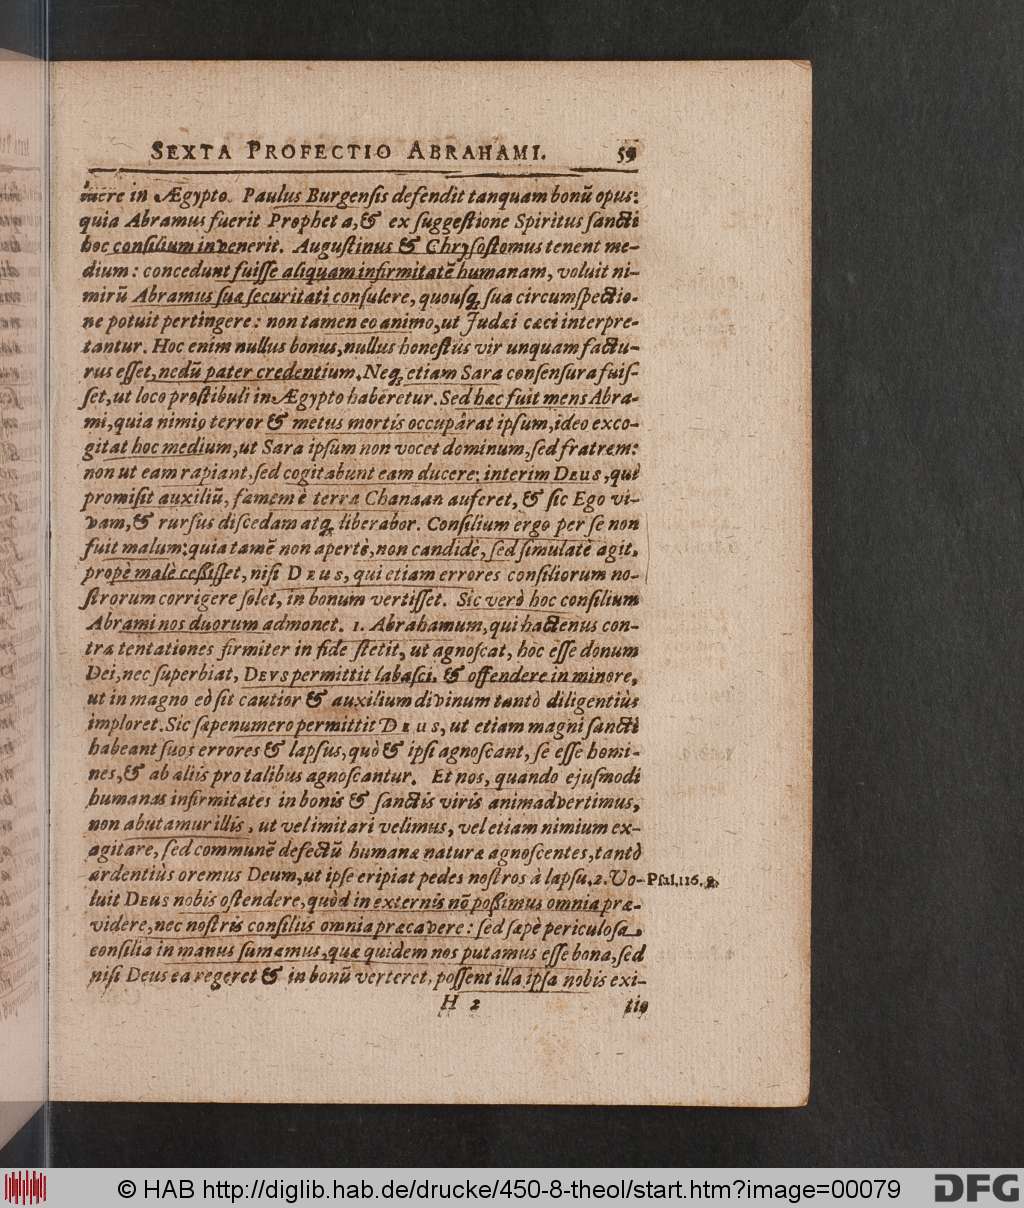 SEXTA PROFECTIO ABRAHAMI. 59
vuere in Ægypto. Paulus Burgensis defendit tanquam bonũ opus:
quia Abramus fuerit Propheta, & ex suggestione Spiritus sancti
hoc consilium invenerit. Augustinus & Chrysostomus tenent me-
dium: concedunt fuisse aliquam infirmitatẽ humanam, voluit ni-
mirũ Abramus suæ securitati consulere, quousq; sua circumspectio-
ne potuit pertingere: non tamen eo animo, ut Judæi cæci interpre-
tantur. Hoc enim nullus bonus, nullus honestus vir unquam factu-
rus esset, nedũ pater credentium. Neq; etiam Sara consensura fuis-
set, ut loco prostibuli in Ægypto haberetur. Sed hæc fuit mens Abra-
mi, quia nimio terror & metus mortis occupârat ipsum, ideo exco-
gitat hoc medium, ut Sara ipsum non vocet dominum, sed fratrem:
non ut eam rapiant, sed cogitabunt eam ducere: interim DEUS, qui
promisit auxiliũ, famem è terra Chanaan auferet, & sic Ego vi-
vam, & rursus discedam atq; liberabor. Consilium ergo per se non
fuit malum: quia tamẽ non apertè, non candidè, sed simulatè agit,
propè malè cessisset, nisi DEUS, qui etiam errores consiliorum no-
strorum corrigere solet, in bonum vertisset. Sic verò hoc consilium
Abrami nos duorum admonet. 1. Abrahamum, qui hactenus con-
tra tentationes firmiter in fide stetit, ut agnoscat, hoc esse donum
Dei, nec superbiat, DEVS permittit labasci, & offendere in minore,
ut in magno eò sit cautior & auxilium divinum tantò diligentiùs
imploret. Sic sæpenumero permittit DEUS, ut etiam magni sancti
habeant suos errores & lapsus, quò & ipsi agnoscant, se esse homi-
nes, & ab aliis pro talibus agnoscantur. Et nos, quando ejusmodi
humanas infirmitates in bonis & sanctis viris animadvertimus,
non abutamur illis, ut vel imitari velimus, vel etiam nimium ex-
agitare, sed communẽ defectũ humanæ naturæ agnoscentes, tantò
ardentiùs oremus Deum, ut ipse eripiat pedes nostros à lapsu. 2. Vo- Psal. 116. 8.
luit DEUS nobis ostendere, quòd in externis nõ possimus omnia præ-
videre, nec nostris consiliis omnia præcavere: sed sæpè periculosa
consilia in manus sumamus, quæ quidem nos putamus esse bona, sed
nisi Deus ea regeret & in bonũ verteret, possent illa ipsa nobis exi-
H 2 tio
© HAB http://diglib.hab.de/drucke/450-8-theol/start.htm?image=00079 DFG